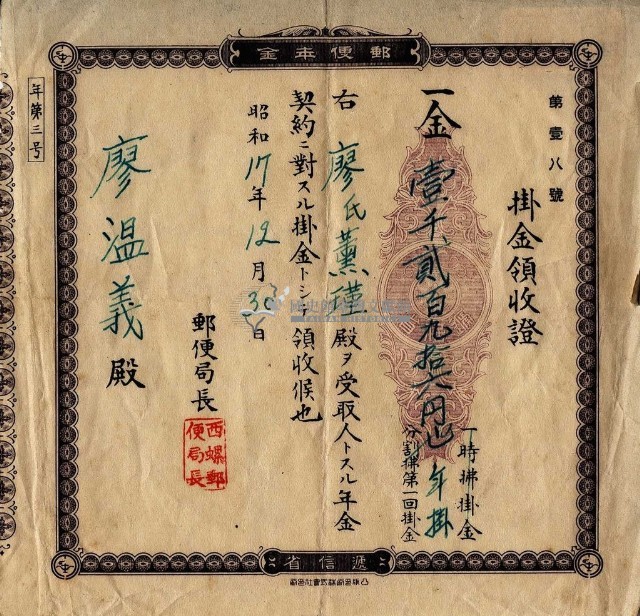 金年便郵
第壹八號
掛金領收證
一金壹千貳百九拾六円也
一時拂掛金
年掛
分割拂第一回掛金
右廖氏薫瑾殿ヲ受取人トスル年金
契約ニ對スル掛金トシテ領收候也
昭和17年12月3日
郵便局長
西螺郵
便局長
廖温義殿
年第三号
省信遞